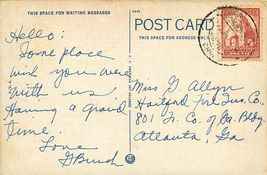 THIS SPACE FOR WRITING MESSAGES
POST CARD
THIS SPACE FOR ADDRESS ONLY
Hello:
Some place
wish you were
with us
Having a grand
time.
Love
Miss G. Allyn
Hartford Fire Ins. Co.
801 Tr. Co. of Ga. Bldg
Atlanta, Ga